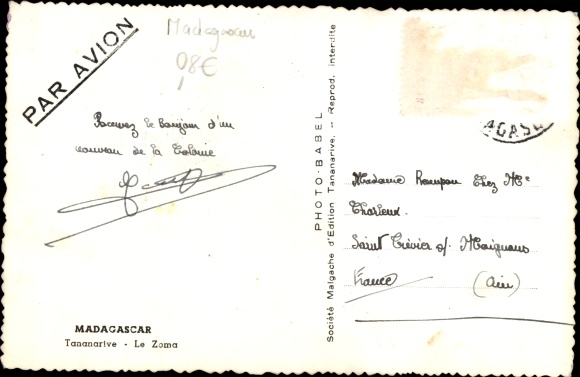 PAR AVION
Madagascar
08€
Recevez le Bonjour d'un
nouveau de la Colonie
MADAGASCAR
Tananarive - Le Zoma
PHOTO-BABEL
Société Malgache d'Edition Tananarive. - Reprod. interdite
AGASC
Madame Rampon Chez Mr
Saint Trévier s/ Moignans
France (Ain)